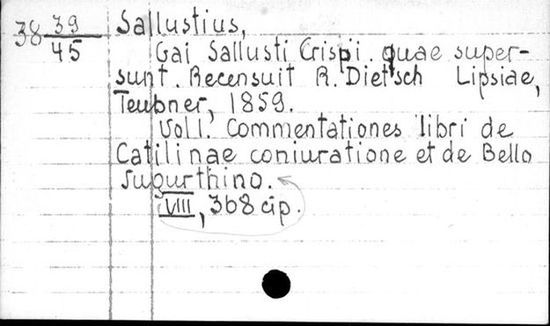 38 39 Sallustius,
45 Gai Sallusti Crispi quae super-
sunt. Recensuit R. Dietsch Lipsiae,
Teubner, 1859.
Vol I. Commentationes libri de
Catilinae coniuratione et de Bello
Jugurthino.
VIII, 368 cip.